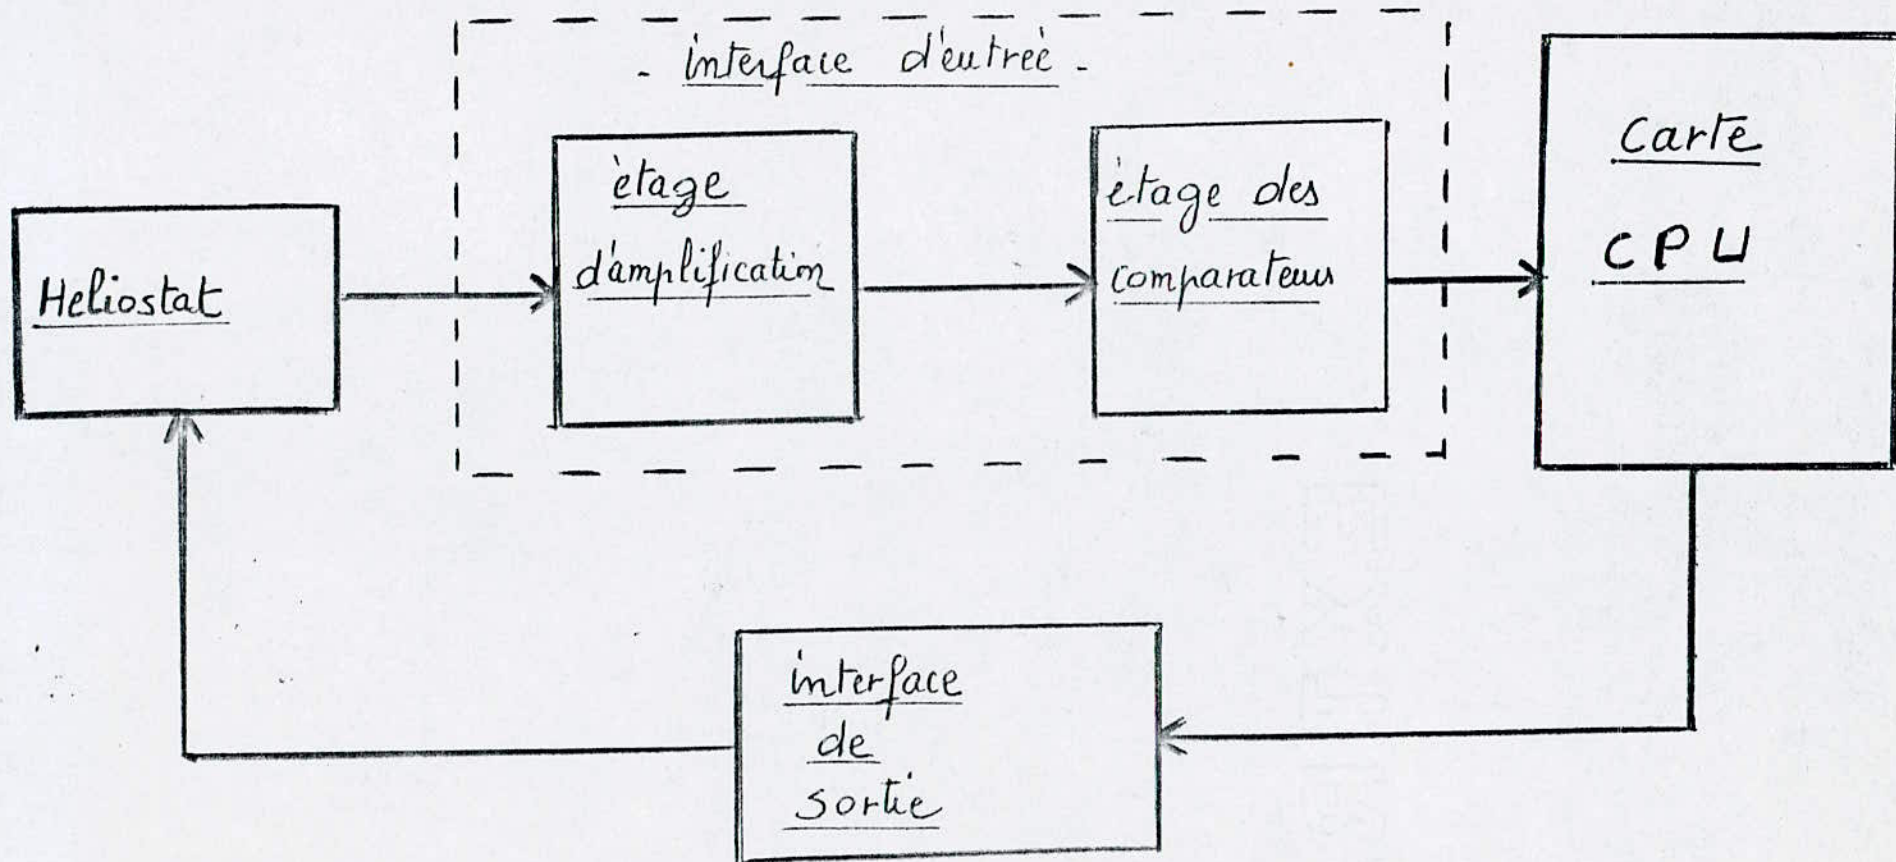 - interface d'entreè -
Heliostat
ètage
d'amplification
ètage des
comparateurs
Carte
CPU
interface
de
sortie